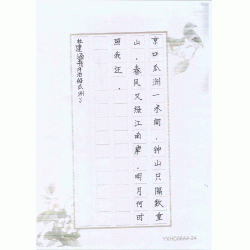 京口瓜洲一水间,钟山只隔数重
山,春风又绿江南岸,明月何时
照我还。
泊船瓜洲